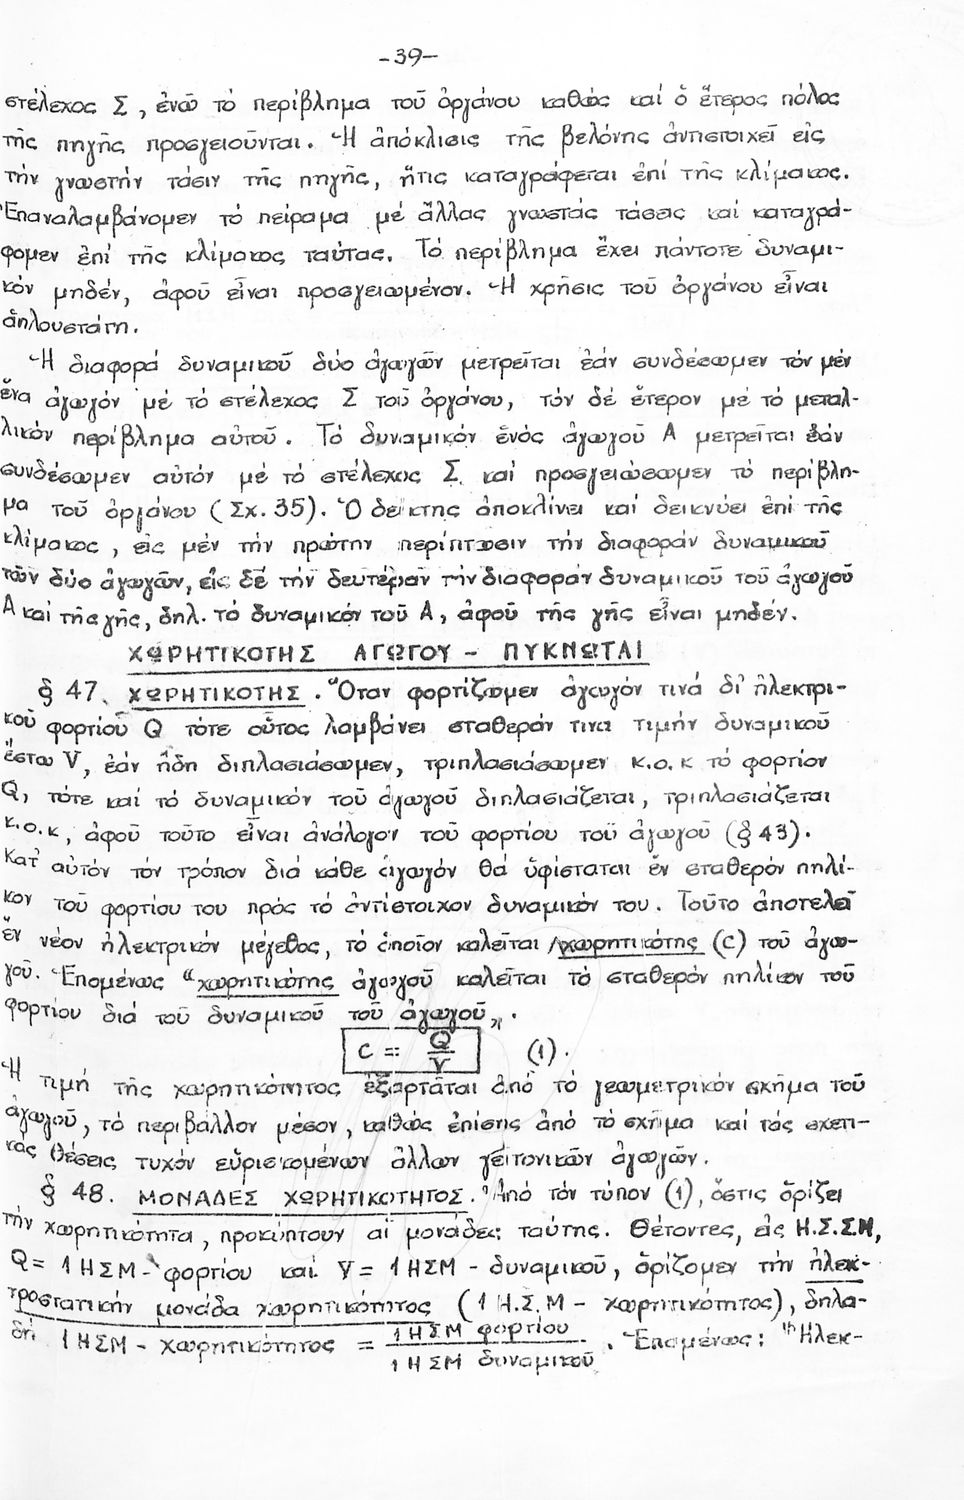 -39-
στέλεχος Σ, ἐνῶ τό περίβλημα τοῦ ὀργάνου καθώς καί ὁ ἕτερος πόλος
τῆς πηγῆς προσγειοῦνται. Ἡ ἀπόκλισις τῆς βελόνης ἀντιστοιχεῖ εἰς
τήν γνωστήν τάσιν τῆς πηγῆς, ἥτις καταγράφεται ἐπί τῆς κλίμακος.
Ἐπαναλαμβάνομεν τό πείραμα μέ ἄλλας γνωστάς τάσεις καί καταγρά-
φομεν ἐπί τῆς κλίμακος ταύτας. Τό περίβλημα ἔχει πάντοτε δυναμι-
κόν μηδέν, ἀφοῦ εἶναι προσγειωμένον. Ἡ χρῆσις τοῦ ὀργάνου εἶναι
ἁπλουστάτη.
Ἡ διαφορά δυναμικοῦ δύο ἀγωγῶν μετρεῖται ἐάν συνδέσωμεν τόν μέν
ἕνα ἀγωγόν μέ τό στέλεχος Σ τοῦ ὀργάνου, τόν δέ ἕτερον μέ τό μεταλ-
λικόν περίβλημα αὐτοῦ. Τό δυναμικόν ἑνός ἀγωγοῦ Α μετρεῖται ἐάν
συνδέσωμεν αὐτόν μέ τό στέλεχος Σ καί προσγειώσωμεν τό περίβλη-
μα τοῦ ὀργάνου (Σχ. 35). Ὁ δείκτης ἀποκλίνει καί δεικνύει ἐπί τῆς
κλίμακος, εἰς μέν τήν πρώτην περίπτωσιν τήν διαφοράν δυναμικοῦ
τῶν δύο ἀγωγῶν, εἰς δέ τήν δευτέραν τήν διαφοράν δυναμικοῦ τοῦ ἀγωγοῦ
Α καί τῆς γῆς, δηλ. τό δυναμικόν τοῦ Α, ἀφοῦ τῆς γῆς εἶναι μηδέν.
ΧΩΡΗΤΙΚΟΤΗΣ ΑΓΩΓΟΥ - ΠΥΚΝΩΤΑΙ
§ 47. ΧΩΡΗΤΙΚΟΤΗΣ. Ὅταν φορτίζωμεν ἀγωγόν τινά δι' ἠλεκτρι-
κοῦ φορτίου Q τότε οὗτος λαμβάνει σταθεράν τινα τιμήν δυναμικοῦ
ἔστω V, ἐάν ἤδη διπλασιάσωμεν, τριπλασιάσωμεν κ.ο.κ τό φορτίον
Q, τότε καί τό δυναμικόν τοῦ ἀγωγοῦ διπλασιάζεται, τριπλασιάζεται
κ.ο.κ, ἀφοῦ τοῦτο εἶναι ἀνάλογον τοῦ φορτίου τοῦ ἀγωγοῦ (§ 43).
Κατ' αὐτόν τόν τρόπον διά κάθε ἀγωγόν θά ὑφίσταται ἕν σταθερόν πηλί-
κον τοῦ φορτίου του πρός τό ἀντίστοιχον δυναμικόν του. Τοῦτο ἀποτελεῖ
ἕν νέον ἠλεκτρικόν μέγεθος, τό ὁποῖον καλεῖται χωρητικότης (C) τοῦ ἀγω-
γοῦ. Ἑπομένως "χωρητικότης ἀγωγοῦ καλεῖται τό σταθερόν πηλίκον τοῦ
φορτίου διά τοῦ δυναμικοῦ τοῦ ἀγωγοῦ".
C = Q/V (1).
Ἡ τιμή τῆς χωρητικότητος ἐξαρτᾶται ἀπό τό γεωμετρικόν σχῆμα τοῦ
ἀγωγοῦ, τό περιβάλλον μέσον, καθώς ἐπίσης ἀπό τό σχῆμα καί τάς σχετι-
κάς θέσεις τυχόν εὑρισκομένων ἄλλων γειτονικῶν ἀγωγῶν.
§ 48. ΜΟΝΑΔΕΣ ΧΩΡΗΤΙΚΟΤΗΤΟΣ. Ἀπό τόν τύπον (1), ὅστις ὁρίζει
τήν χωρητικότητα, προκύπτουν αἱ μονάδες ταύτης. Θέτοντες, εἰς Η.Σ.ΣΜ,
Q = 1 ΗΣΜ - φορτίου καί V = 1 ΗΣΜ - δυναμικοῦ, ὁρίζομεν τήν ἠλεκ-
τροστατικήν μονάδα χωρητικότητος (1 Η.Σ.Μ - χωρητικότητος), δηλα-
δή 1 ΗΣΜ - χωρητικότητος = 1 ΗΣΜ φορτίου / 1 ΗΣΜ δυναμικοῦ. Ἑπομένως: "Ἠλεκ-